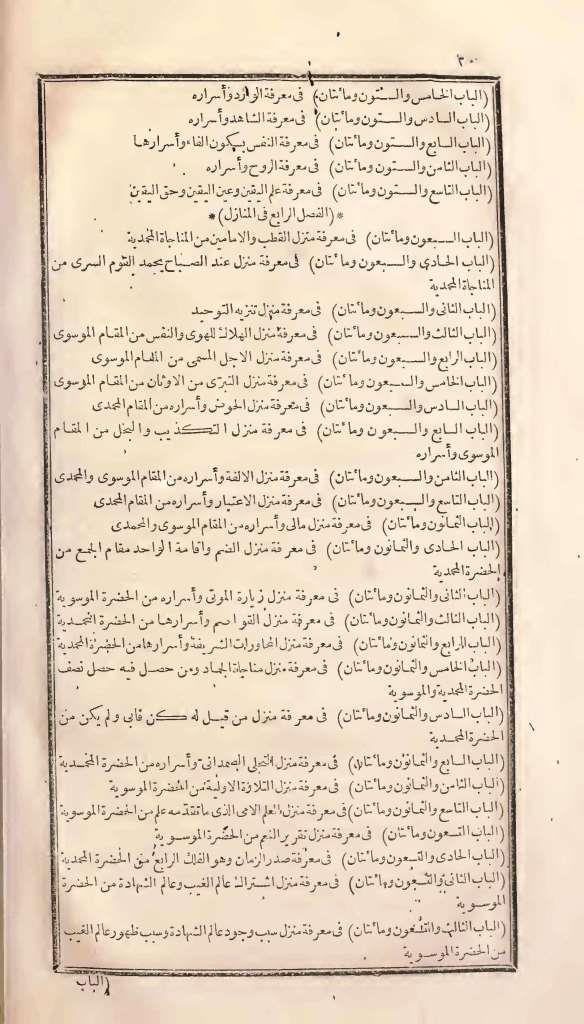 ٣٠
(الباب الخامس والستون ومائتان) فى معرفة الوارد وأسراره
(الباب السادس والستون ومائتان) فى معرفة الشاهد وأسراره
(الباب السابع والستون ومائتان) فى معرفة النفس بسكون الفاء وأسرارها
(الباب الثامن والستون ومائتان) فى معرفة الروح وأسراره
(الباب التاسع والستون ومائتان) فى معرفة علم اليقين وعين اليقين وحق اليقين
*(الفصل الرابع فى المنازل)*
(الباب السبعون ومائتان) فى معرفة منزل القطب والامامين من المناجاة المحمدية
(الباب الحادى والسبعون ومائتان) فى معرفة منزل عند الصباح يحمد القوم السرى من
المناجاة المحمدية
(الباب الثانى والسبعون ومائتان) فى معرفة منزل تنزيه التوحيد
(الباب الثالث والسبعون ومائتان) فى معرفة منزل الهلاك للهوى والنفس من المقام الموسوى
(الباب الرابع والسبعون ومائتان) فى معرفة منزل الاجل المسمى من المقام الموسوى
(الباب الخامس والسبعون ومائتان) فى معرفة منزل التبرى من الاوثان من المقام الموسوى
(الباب السادس والسبعون ومائتان) فى معرفة منزل الحوض وأسراره من المقام المحمدى
(الباب السابع والسبعون ومائتان) فى معرفة منزل التكذيب والبخل من المقام
الموسوى وأسراره
(الباب الثامن والسبعون ومائتان) فى معرفة منزل الالفة وأسراره من المقام الموسوى والمحمدى
(الباب التاسع والسبعون ومائتان) فى معرفة منزل الاعتبار وأسراره من المقام المحمدى
(الباب الثمانون ومائتان) فى معرفة منزل مالى وأسراره من المقام الموسوى والمحمدى
(الباب الحادى والثمانون ومائتان) فى معرفة منزل الضم واقامة الواحد مقام الجمع من
الحضرة المحمدية
(الباب الثانى والثمانون ومائتان) فى معرفة منزل زيارة الموتى وأسراره من الحضرة الموسوية
(الباب الثالث والثمانون ومائتان) فى معرفة منزل القواصم وأسرارها من الحضرة المحمدية
(الباب الرابع والثمانون ومائتان) فى معرفة منزل المجاورات الشريفة وأسرارها من الحضرة المحمدية
(الباب الخامس والثمانون ومائتان) فى معرفة منزل مناجاة الجماد ومن حصل فيه حصل نصف
الحضرة المحمدية والموسوية
(الباب السادس والثمانون ومائتان) فى معرفة منزل من قيل له كن فابى ولم يكن من
الحضرة المحمدية
(الباب السابع والثمانون ومائتان) فى معرفة منزل التجلى الصمدانى وأسراره من الحضرة المحمدية
(الباب الثامن والثمانون ومائتان) فى معرفة منزل التلاوة الاولية من الحضرة الموسوية
(الباب التاسع والثمانون ومائتان) فى معرفة منزل العلم الامى الذى ما تقدمه علم من الحضرة الموسوية
(الباب التسعون ومائتان) فى معرفة منزل تقرير النعم من الحضرة الموسوية
(الباب الحادى والتسعون ومائتان) فى معرفة صدر الزمان وهو الفلك الرابع من الحضرة المحمدية
(الباب الثانى والتسعون ومائتان) فى معرفة منزل اشتراك عالم الغيب وعالم الشهادة من الحضرة
الموسوية
(الباب الثالث والتسعون ومائتان) فى معرفة منزل سبب وجود عالم الشهادة وسبب ظهور عالم الغيب
من الحضرة الموسوية
(الباب